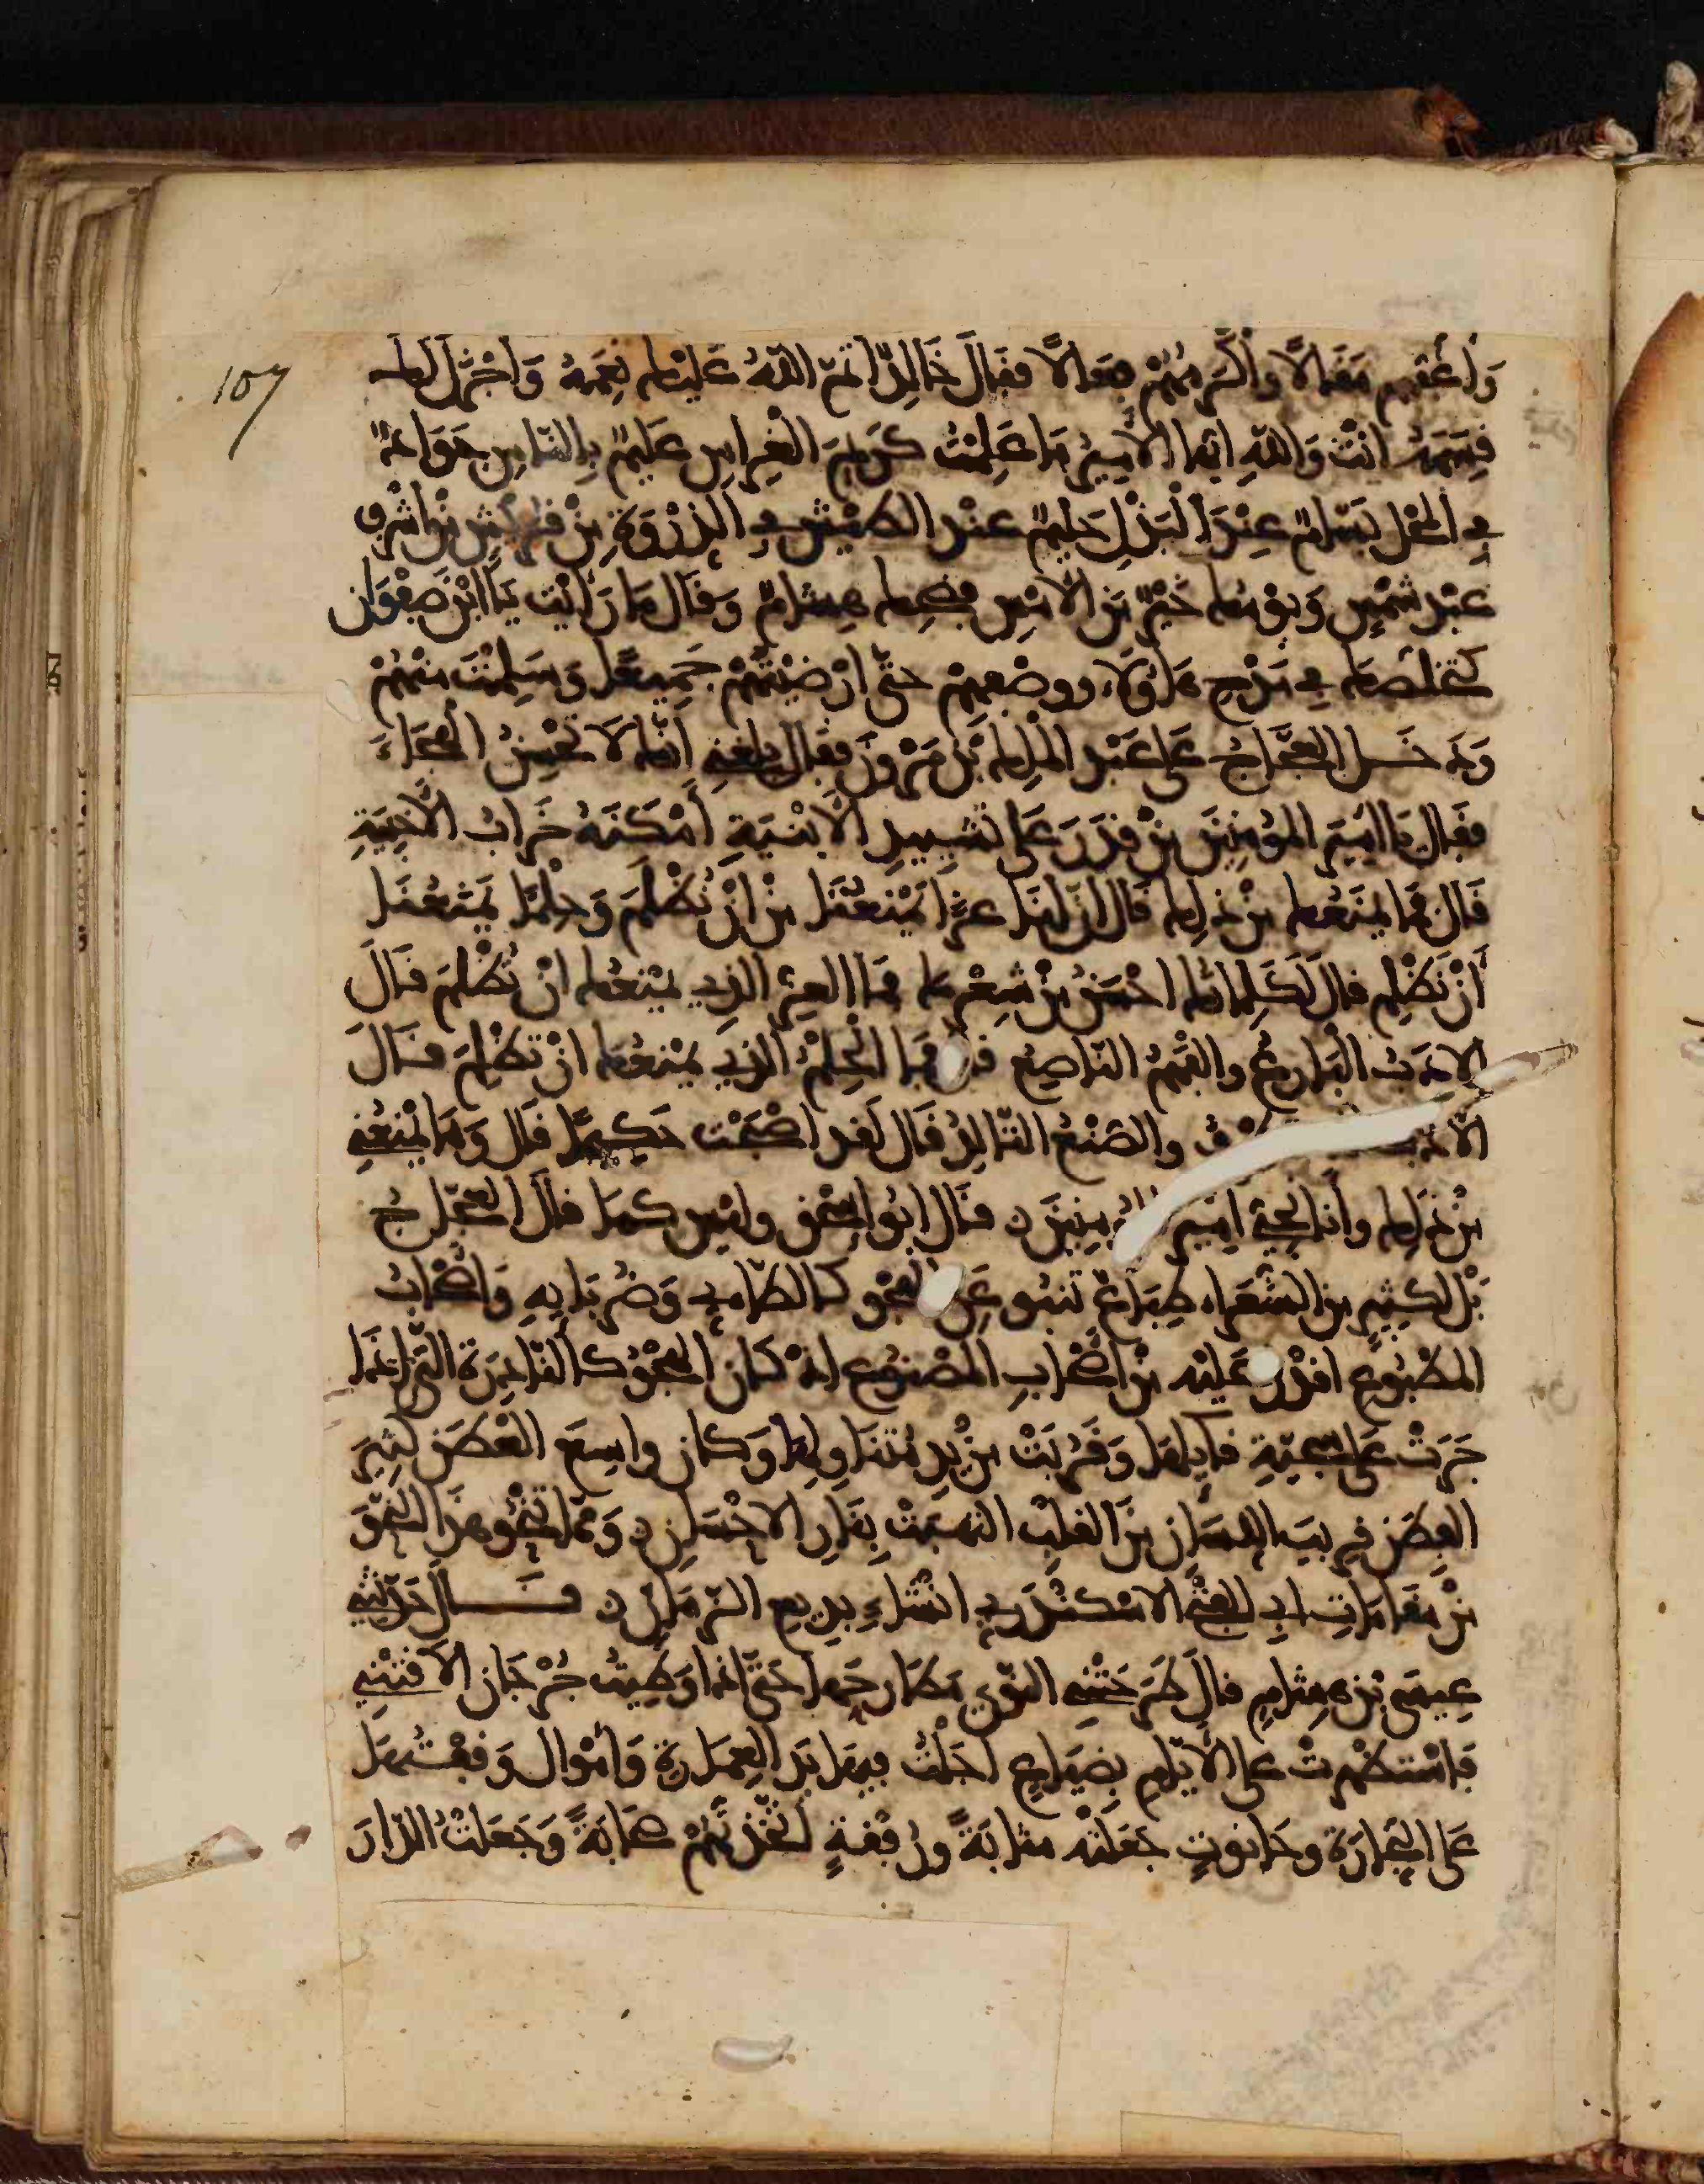 107
وَأَعَفِّهِم مَقَالًا وأكْرَمِهُمْ فِعَالًا فقَالَ خَالِدٌ اتمّ اللهُ عَلَيْكَ نِعَمَهُ وَأجْزَلَ لَكَ
قِسَمَهُ انْتَ وَاللهِ ايّها الأمِيرُ مَا عَلِمْتُ كَرِيمُ الغِراسِ عَلِيمٌ بِالنّاسِ جَوَادٌ
في المَحْلِ بَسّامٌ عِنْدَ البَذْلِ حَلِيمٌ عند الطيْشِ في الذِّرْوَةِ مِنْ قُرَيْشٍ مِنْ اشْرَفِ
عَبْدِ شَمْسٍ وَيَوْمُكَ خَيْرٌ مِنَ الأمْسِ فضحِكَ هِشامٌ وَقَالَ مَا رَأيْت يَا ابْنَ صَفْوَان
كتخلصك في مَدْحِ هَاؤُلَاءِ ووصْفِهِمْ حتَّى ارْضَيْتَهُمْ جَمِيعًا وَسَلِمْتَ مِنْهُمْ
وَدَخَل العَجَّاجُ عَلَى عَبْدِ المَلِك بْنِ مَرْوَن فقَال بلغني انَّكَ لا تُحْسِنُ الهِجَاءَ
فقَالَ يَا أمِيرَ المُؤمِنِينَ مَنْ قَدَرَ عَلَى تَشْيِيدِ الأبْنِيَةِ أمْكَنَهُ خَرَابُ الأخْبِيَةِ
قَالَ فمَا يَمْنَعُكَ مِنْ ذلِك قَالَ انَّ لَنَا عِزًّا يَمْنَعُنَا مِنْ انْ نُظْلَمَ وَحِلْمًا يَمْنَعُنَا
أنْ نَظْلِمَ قال لَكَلِماتُك احْسَنُ مِنْ شِعْرِك فمَا العِزُّ الذِي يَمْنَعُك انْ تُظْلَمَ قَالَ
الادَبُ البَارِعُ والفَهْمُ النّاصِعُ قال فمَا الحِلْمُ الذِي يَمْنَعُك انْ تَظْلِمَ قَالَ
الأدَب والصُّنْعُ التَّالِدُ قَالَ لَقَد اصْبَحْت حَكِيمًا قَالَ وَمَا يَمْنَعُنِي
مِنْ ذلِك وأنَا نَجِيُّ امِيرِ المُؤمِنِينَ قَالَ ابُو اسْحٰق وليْس كمَا قالَ العَجّاجُ
بَلْ لكثِيرٍ مِنَ الشُّعَراءِ طِبَاعٌ تَنْبُو عَنِ الهَجْوِ كالطّائِي وَضُرَبَايِهِ وَأصْحَابُ
المَطْبُوعِ اقْدَرُ عَلَيْهِ مِنْ اصْحَابِ المَصْنُوعِ اذْ كَانَ الهَجْوُ كالنّادِرَةِ التِّي اذَا
جَرَتْ عَلَى سَجِيّةِ قايِلهَا وَقَرُبَتْ مِنْ يَدِ مُتَنَاوِلِهَا وَكان واسِعَ العَطَنِ كثِيرَ
الفِطَنِ قرِيبَ اللِّسَانِ مِنَ القلْبِ التهَبَتْ بِنَارِ الاحْسَانِ وَمِمّا يَنْحُو هٰذَا النّحْوَ
مِنْ مَقَامَاتِ ابِي الفَتْحِ الاسْكنْدَرِي انْشَاءِ بدِيعِ الزّمَانِ قَال حَدّثَنِي
عِيسَى بْن هِشَامٍ قالَ طَرَحَتْنِي النّوَى مَطَارِحَهَا حَتَّى اذَا وَطِئْتُ جُرْجَانَ الأقْصَى
فَاسْتظْهَرْتُ عَلى الأيّامِ بِضِيَاعٍ اجَلْتُ فيهَا يَدَ العِمَارَةِ وَأمْوَالٍ وَقفْتُهَا
عَلى التِّجَارَةِ وحَانُوتٍ جَعَلْتُه مثابَةً ورُفْقَةٍ اتّخَذْتُهُمْ صَحَابَةً وَجَعَلْتُ الدّارَ